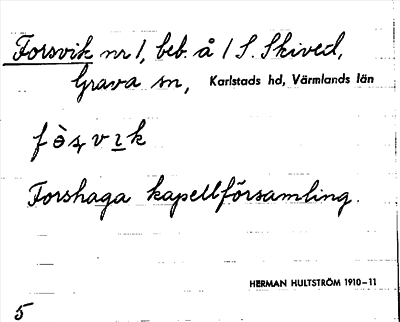 Forsvik nr 1, beb. å 1 S. Skived,
Grava sn, Karlstads hd, Värmlands län
Forshaga kapellförsamling.
HERMAN HULTSTRÖM 1910–11
5